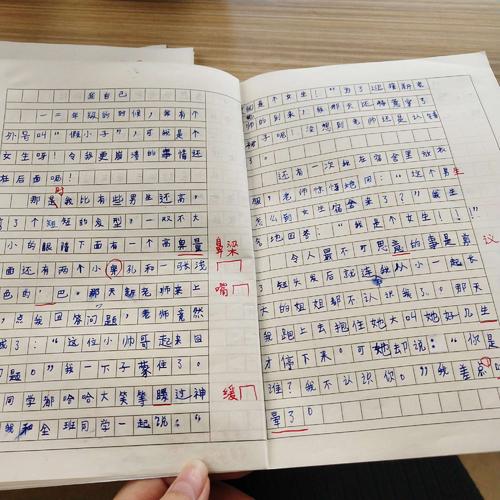 我自己
一二年级的时候，我有个
外号叫“假小子”，可我是个
女生呀！令我更崩溃的事情还
在后面呢！
那时我比有些男生还高，
了个短短的发型，一双不大
小的眼睛下面有一个高鼻量
鼻梁
面还有两个小鼻孔和一张浅
色的 巴。那天新老师来上
嘴
，点我回答问题，老师竟然
了：“这位小帅哥起来回
问题。”我一下子蒙住了。
同学都哈哈大笑等腰过神
缓
我和全班同学一起说：“
我是个女生！”为了迎接新老
师的到来，我那天还特意穿了
裙子呢！没想到老师还是认错
。
还有一次我在宿舍里放衣
服，老师惊慌地问：“这个男生
怎么到女生宿舍来了？”我生
气地回答：“我是个女生！！”
令人最不可思意的事是剪
议
了短头发后就连从小一起长
大的姐姐都不认识我了。那天
我跑上去抱住她大叫她好几生
才停下来。可她却说：“你是
谁？我不认识你。”我差点
晕了。